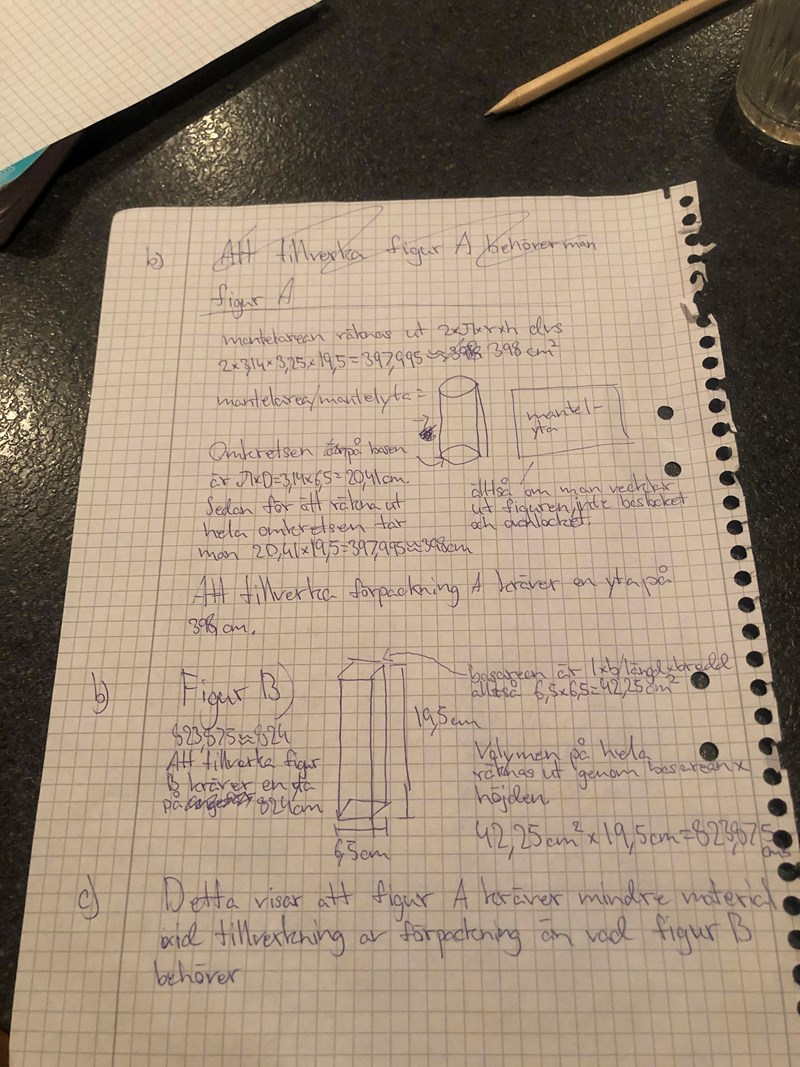 b) Att tillverka figur A behöver man
figur A
mantelarean räknas ut 2×π×r×h dvs
2×3,14×3,25×19,5=397,995≈398 398 cm²
mantelarea/mantelyta =
mantel-
yta
Omkretsen på basen
är π×D=3,14×6,5=20,41cm.
Sedan för att räkna ut
hela omkretsen tar
man 20,41×19,5=397,995≈398cm
alltså om man vecklar
ut figuren, inte baslocket
och ovanlocket.
Att tillverka förpackning A kräver en yta på
398cm.
b) Figur B)
823,875≈824
Att tillverka figur
B kräver en yta
på 824cm
19,5cm
6,5cm
basarean är l×b/längd×bredd
alltså 6,5×6,5=42,25cm²
Volymen på hela
räknas ut genom basarean×
höjden.
42,25cm²×19,5cm=823,875
cm³
c) Detta visar att figur A kräver mindre material
vid tillverkning av förpackning än vad figur B
behöver